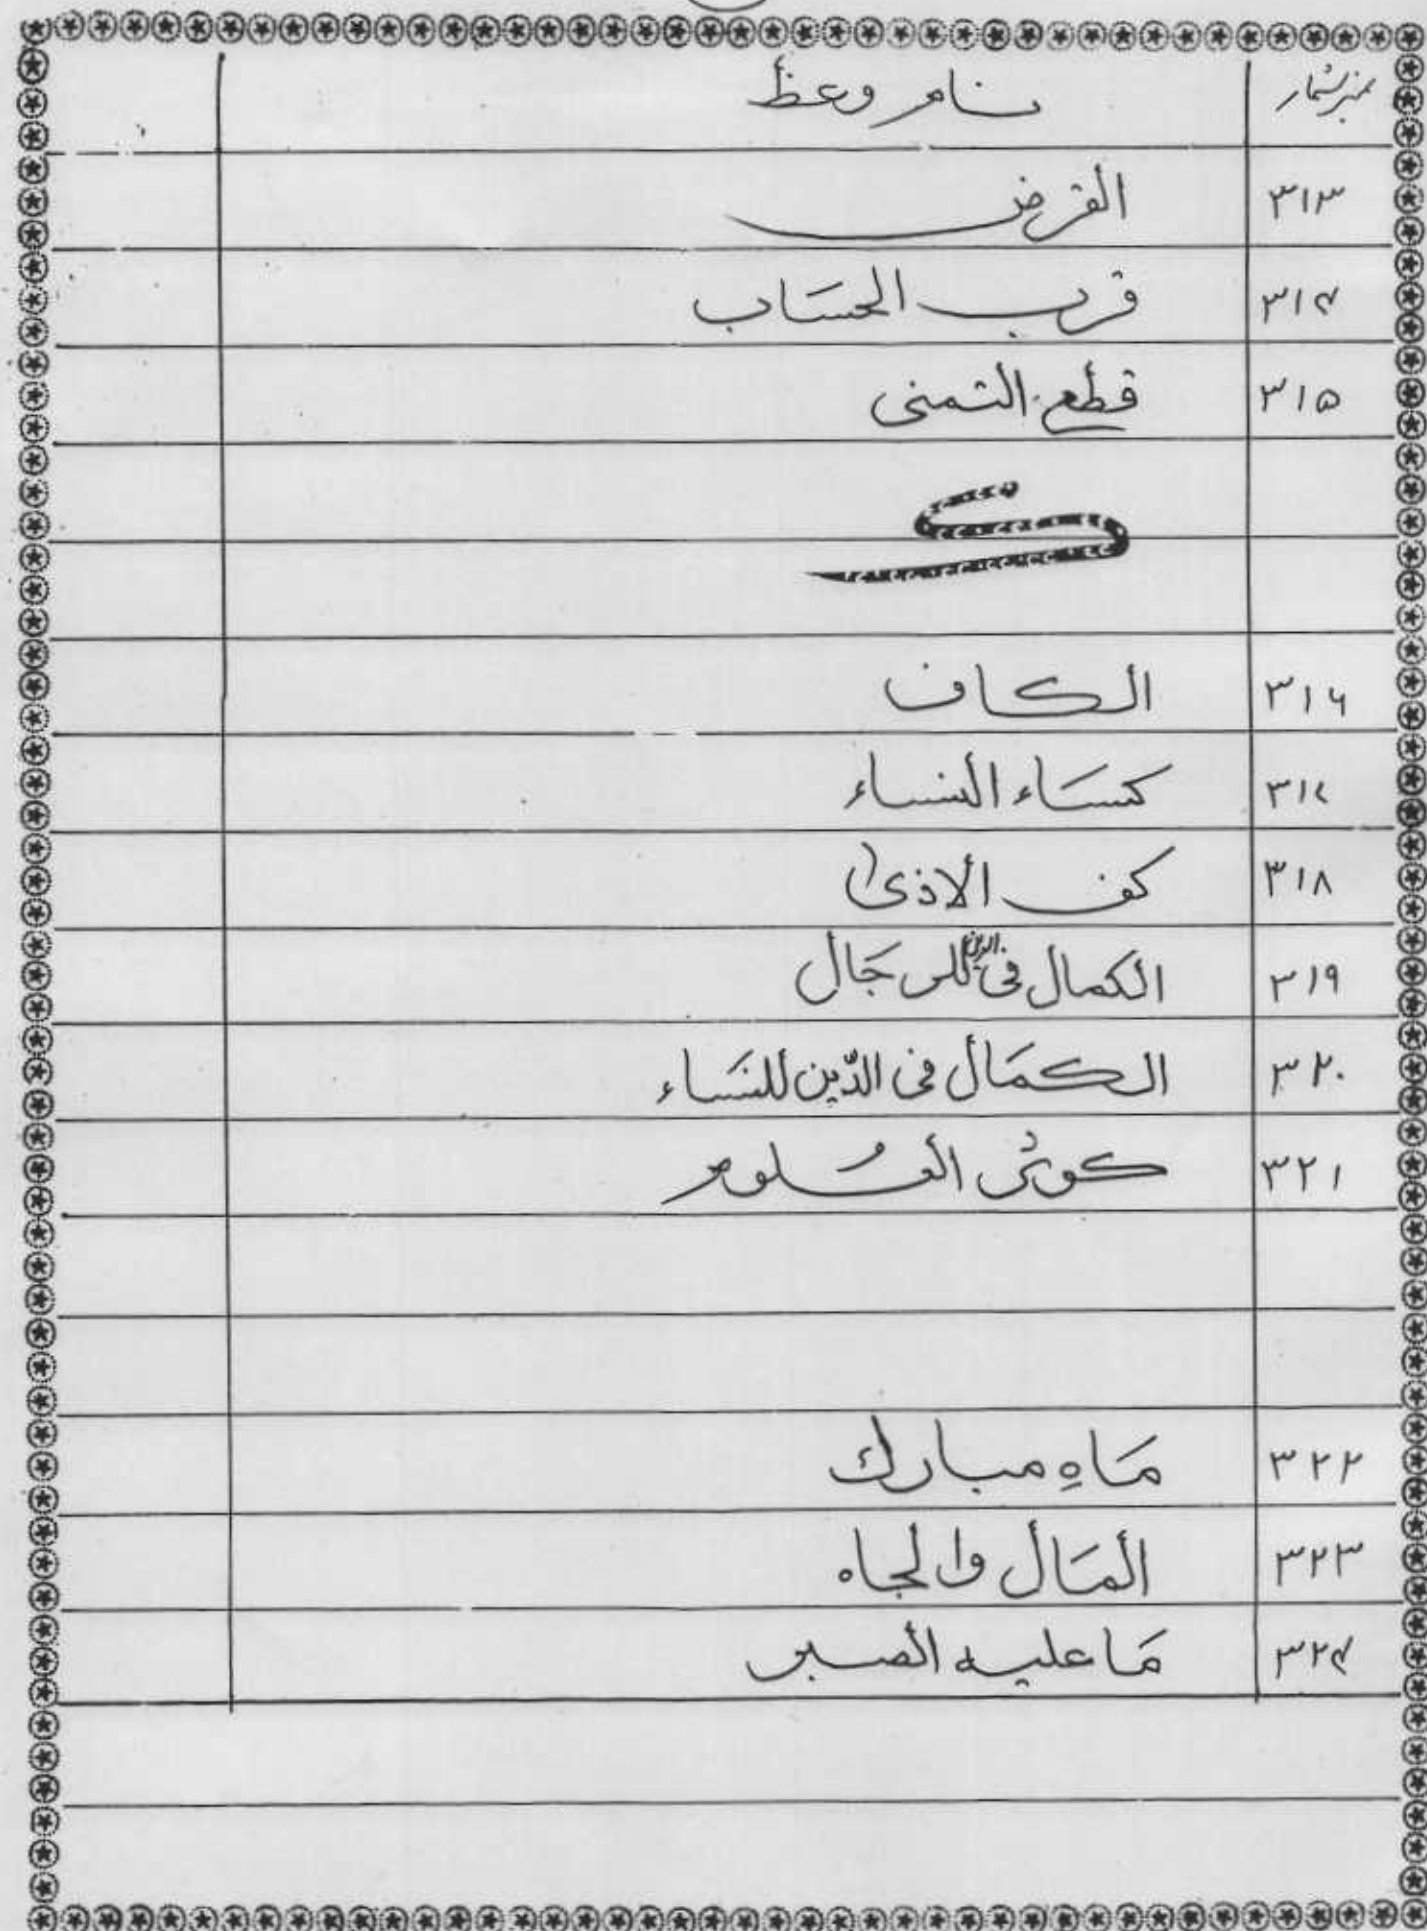 نمبر شمار نام وعظ
۳۱۳ القرض
۳۱۴ قرب الحسَاب
۳۱۵ قطع التمنی
ک
۳۱۶ الکاف
۳۱۷ کسَاء النساء
۳۱۸ کف الاذیٰ
۳۱۹ الکمال فی الدین للرجَال
۳۲۰ الکمَال فی الدّین للنسَاء
۳۲۱ کوثر العُلوم
۳۲۲ مَاہِ مبارک
۳۲۳ المَال والجاہ
۳۲۴ مَا علیہ الصبر